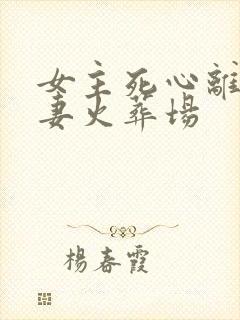 女主死心離
妻火葬場
楊春霞